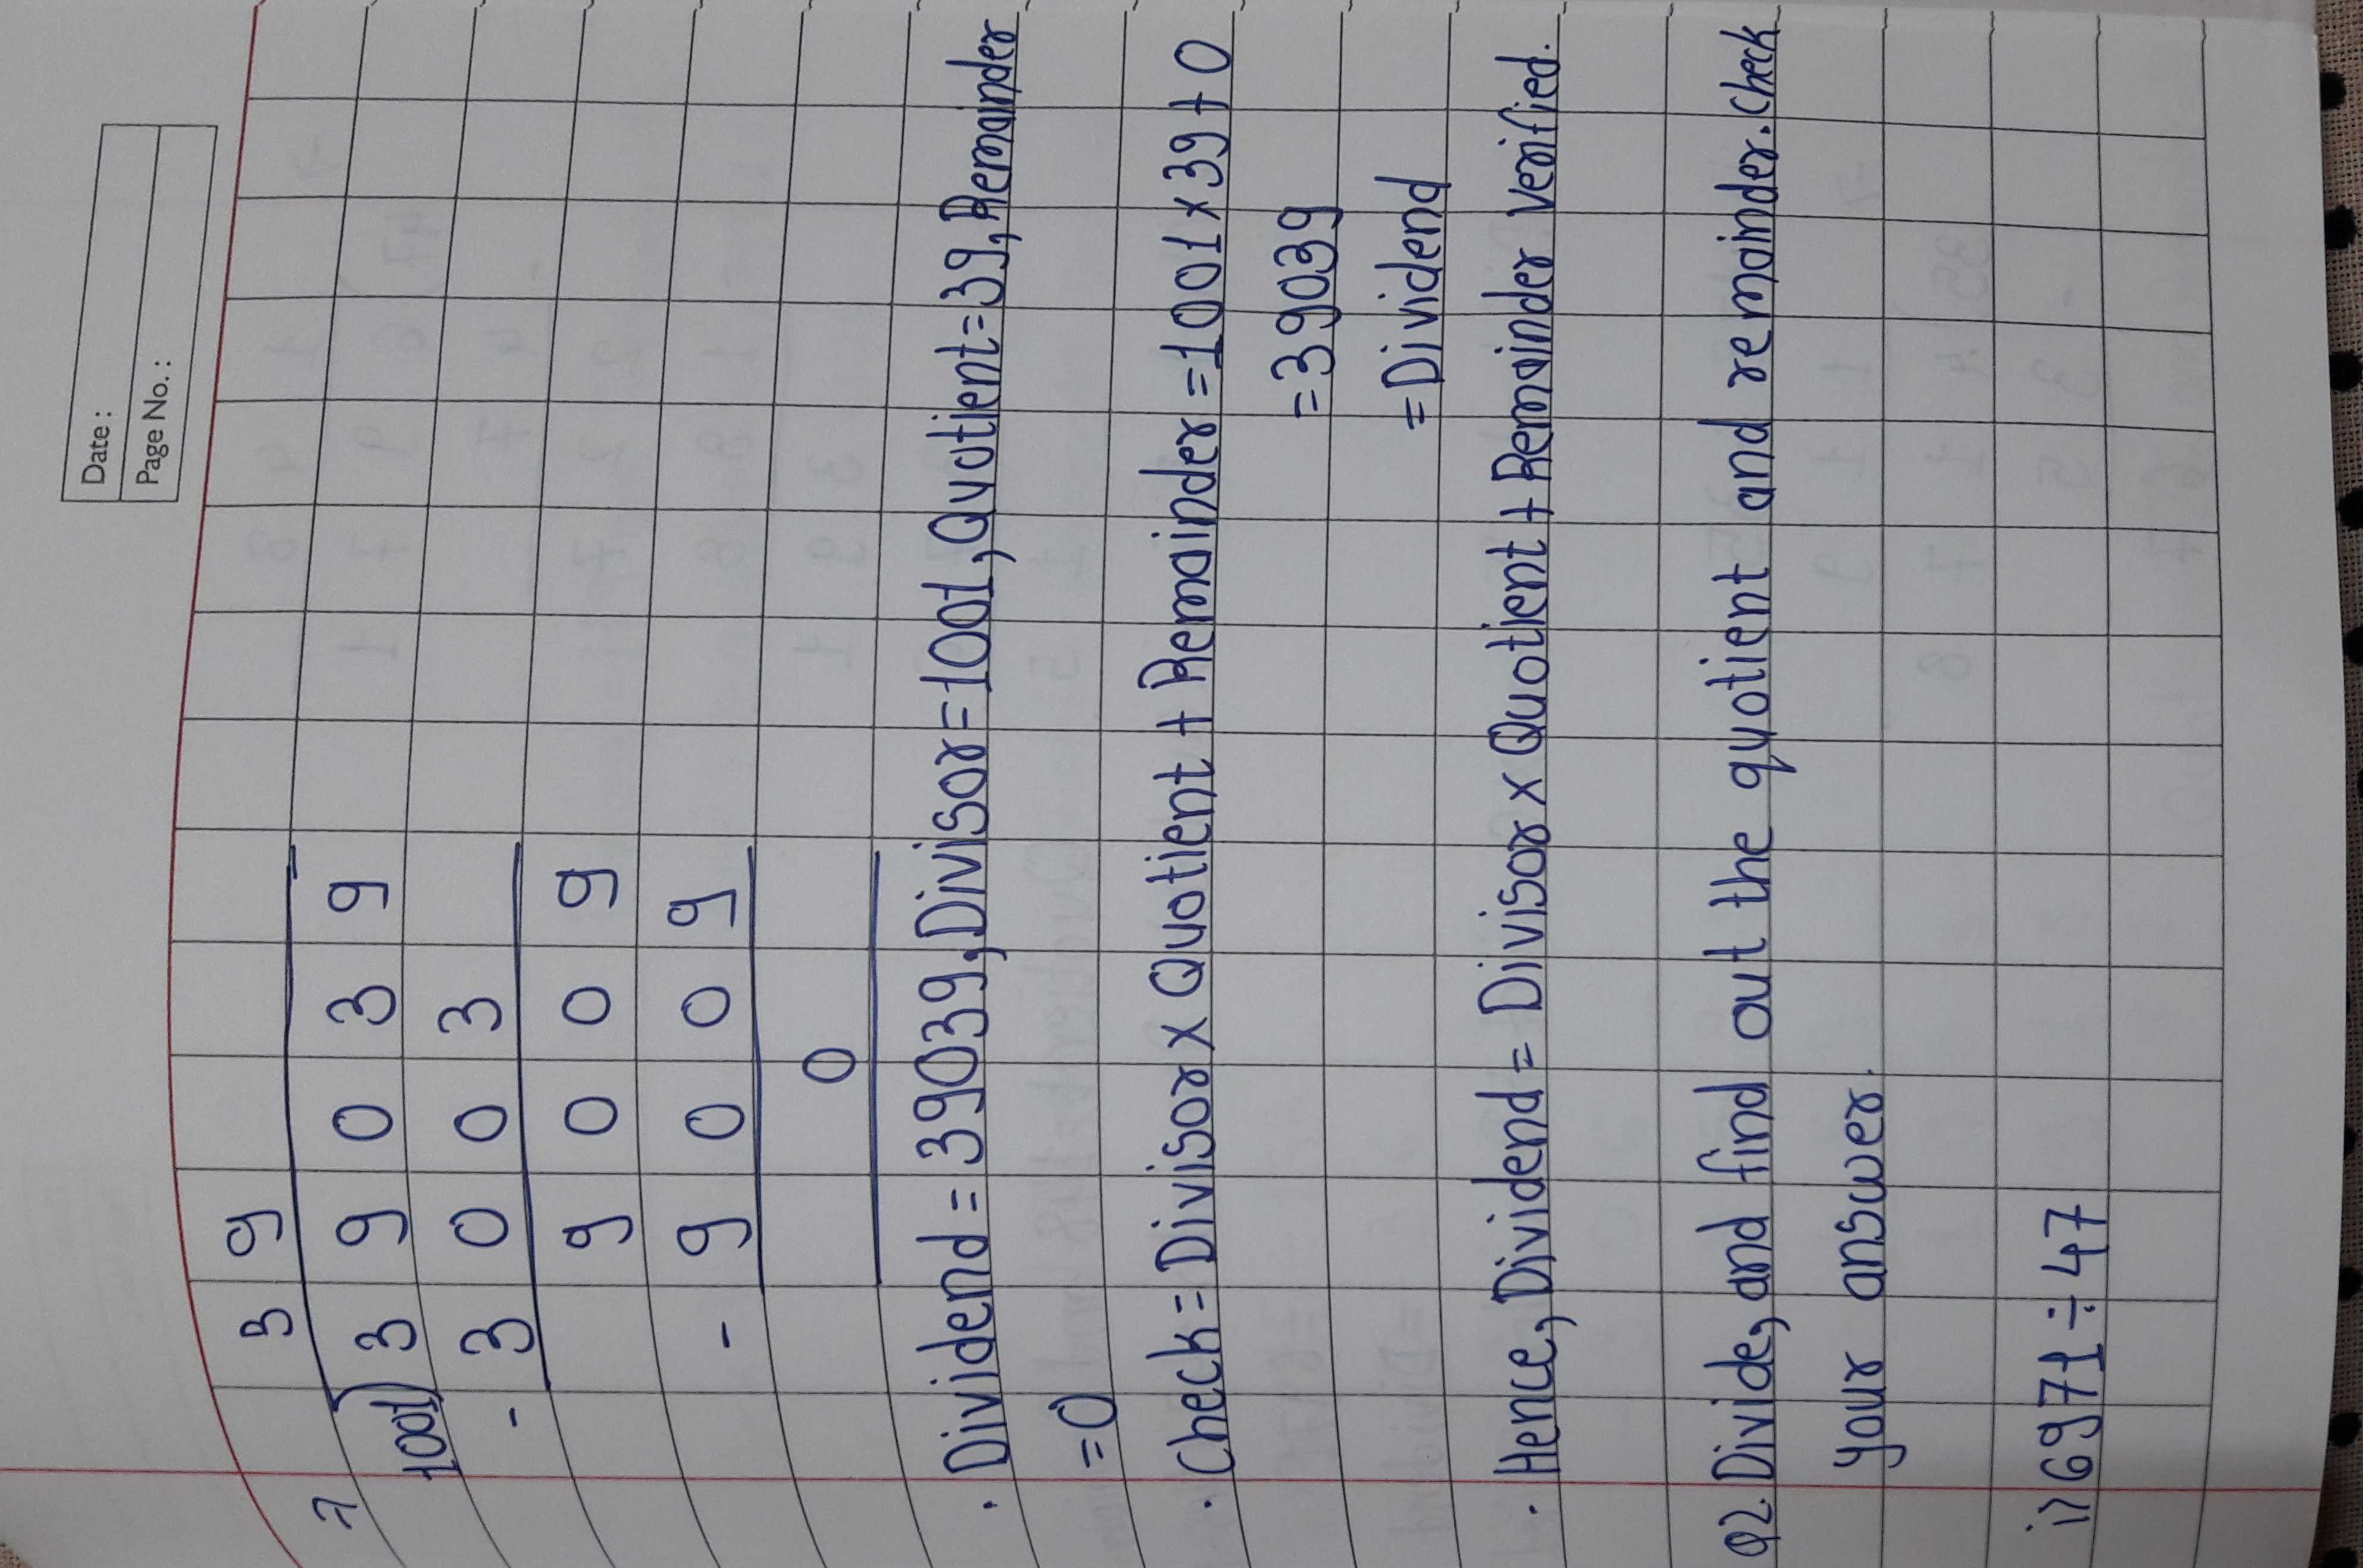 Date :
Page No. :
3 9
1001) 3 9 0 3 9
- 3 0 0 3
9 0 0 9
- 9 0 0 9
0
. Dividend = 39039, Divisor = 1001, Quotient = 39, Remainder
= 0
. Check = Divisor x Quotient + Remainder = 1001 x 39 + 0
= 39039
= Dividend
. Hence, Dividend = Divisor x Quotient + Remainder verified.
Q2. Divide, and find out the quotient and remainder. Check
your answer.
i) 6971 ÷ 47